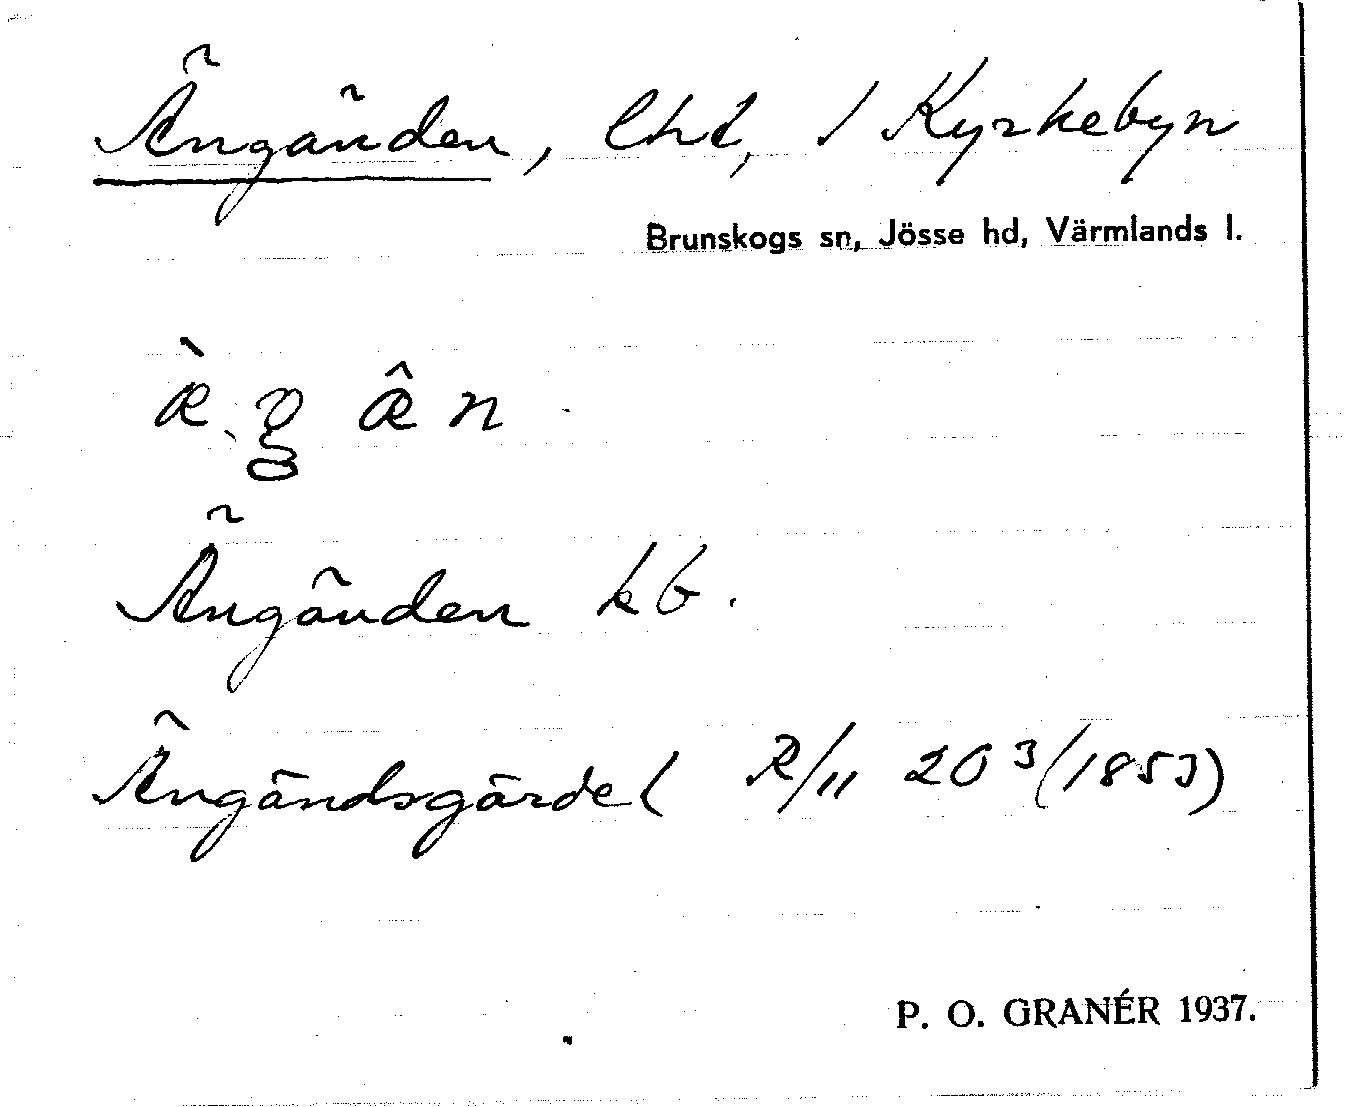 Ängänden, lht, / Kyrkebyn
Brunskogs sn, Jösse hd, Värmlands l.
æ̀ g æ̂ n
Ängänden kb.
Ängändsgärdet R/11 20³ (1853)
P. O. GRANÉR 1937.